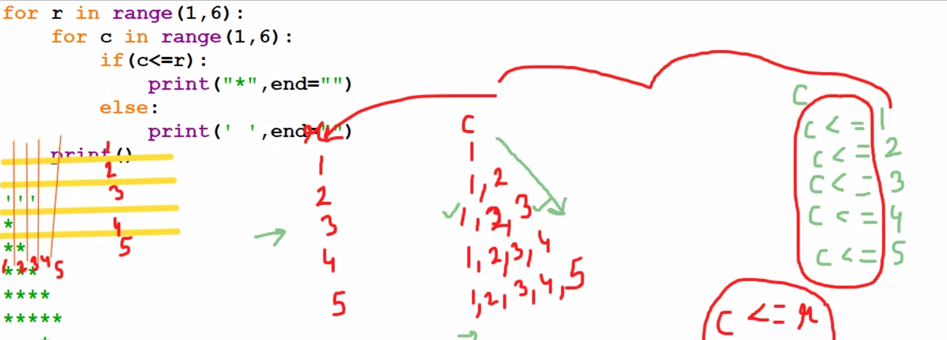 for r in range(1,6):
for c in range(1,6):
if(c<=r):
print("*",end="")
else:
print(' ',end="")
print()
'''
*
**
***
****
*****
1 2 3 4 5
1
2
3
4
5
r c
1 1
2 1,2
3 1,2,3
4 1,2,3,4
5 1,2,3,4,5
c
c <= 1
c <= 2
c <= 3
c <= 4
c <= 5
c <= r